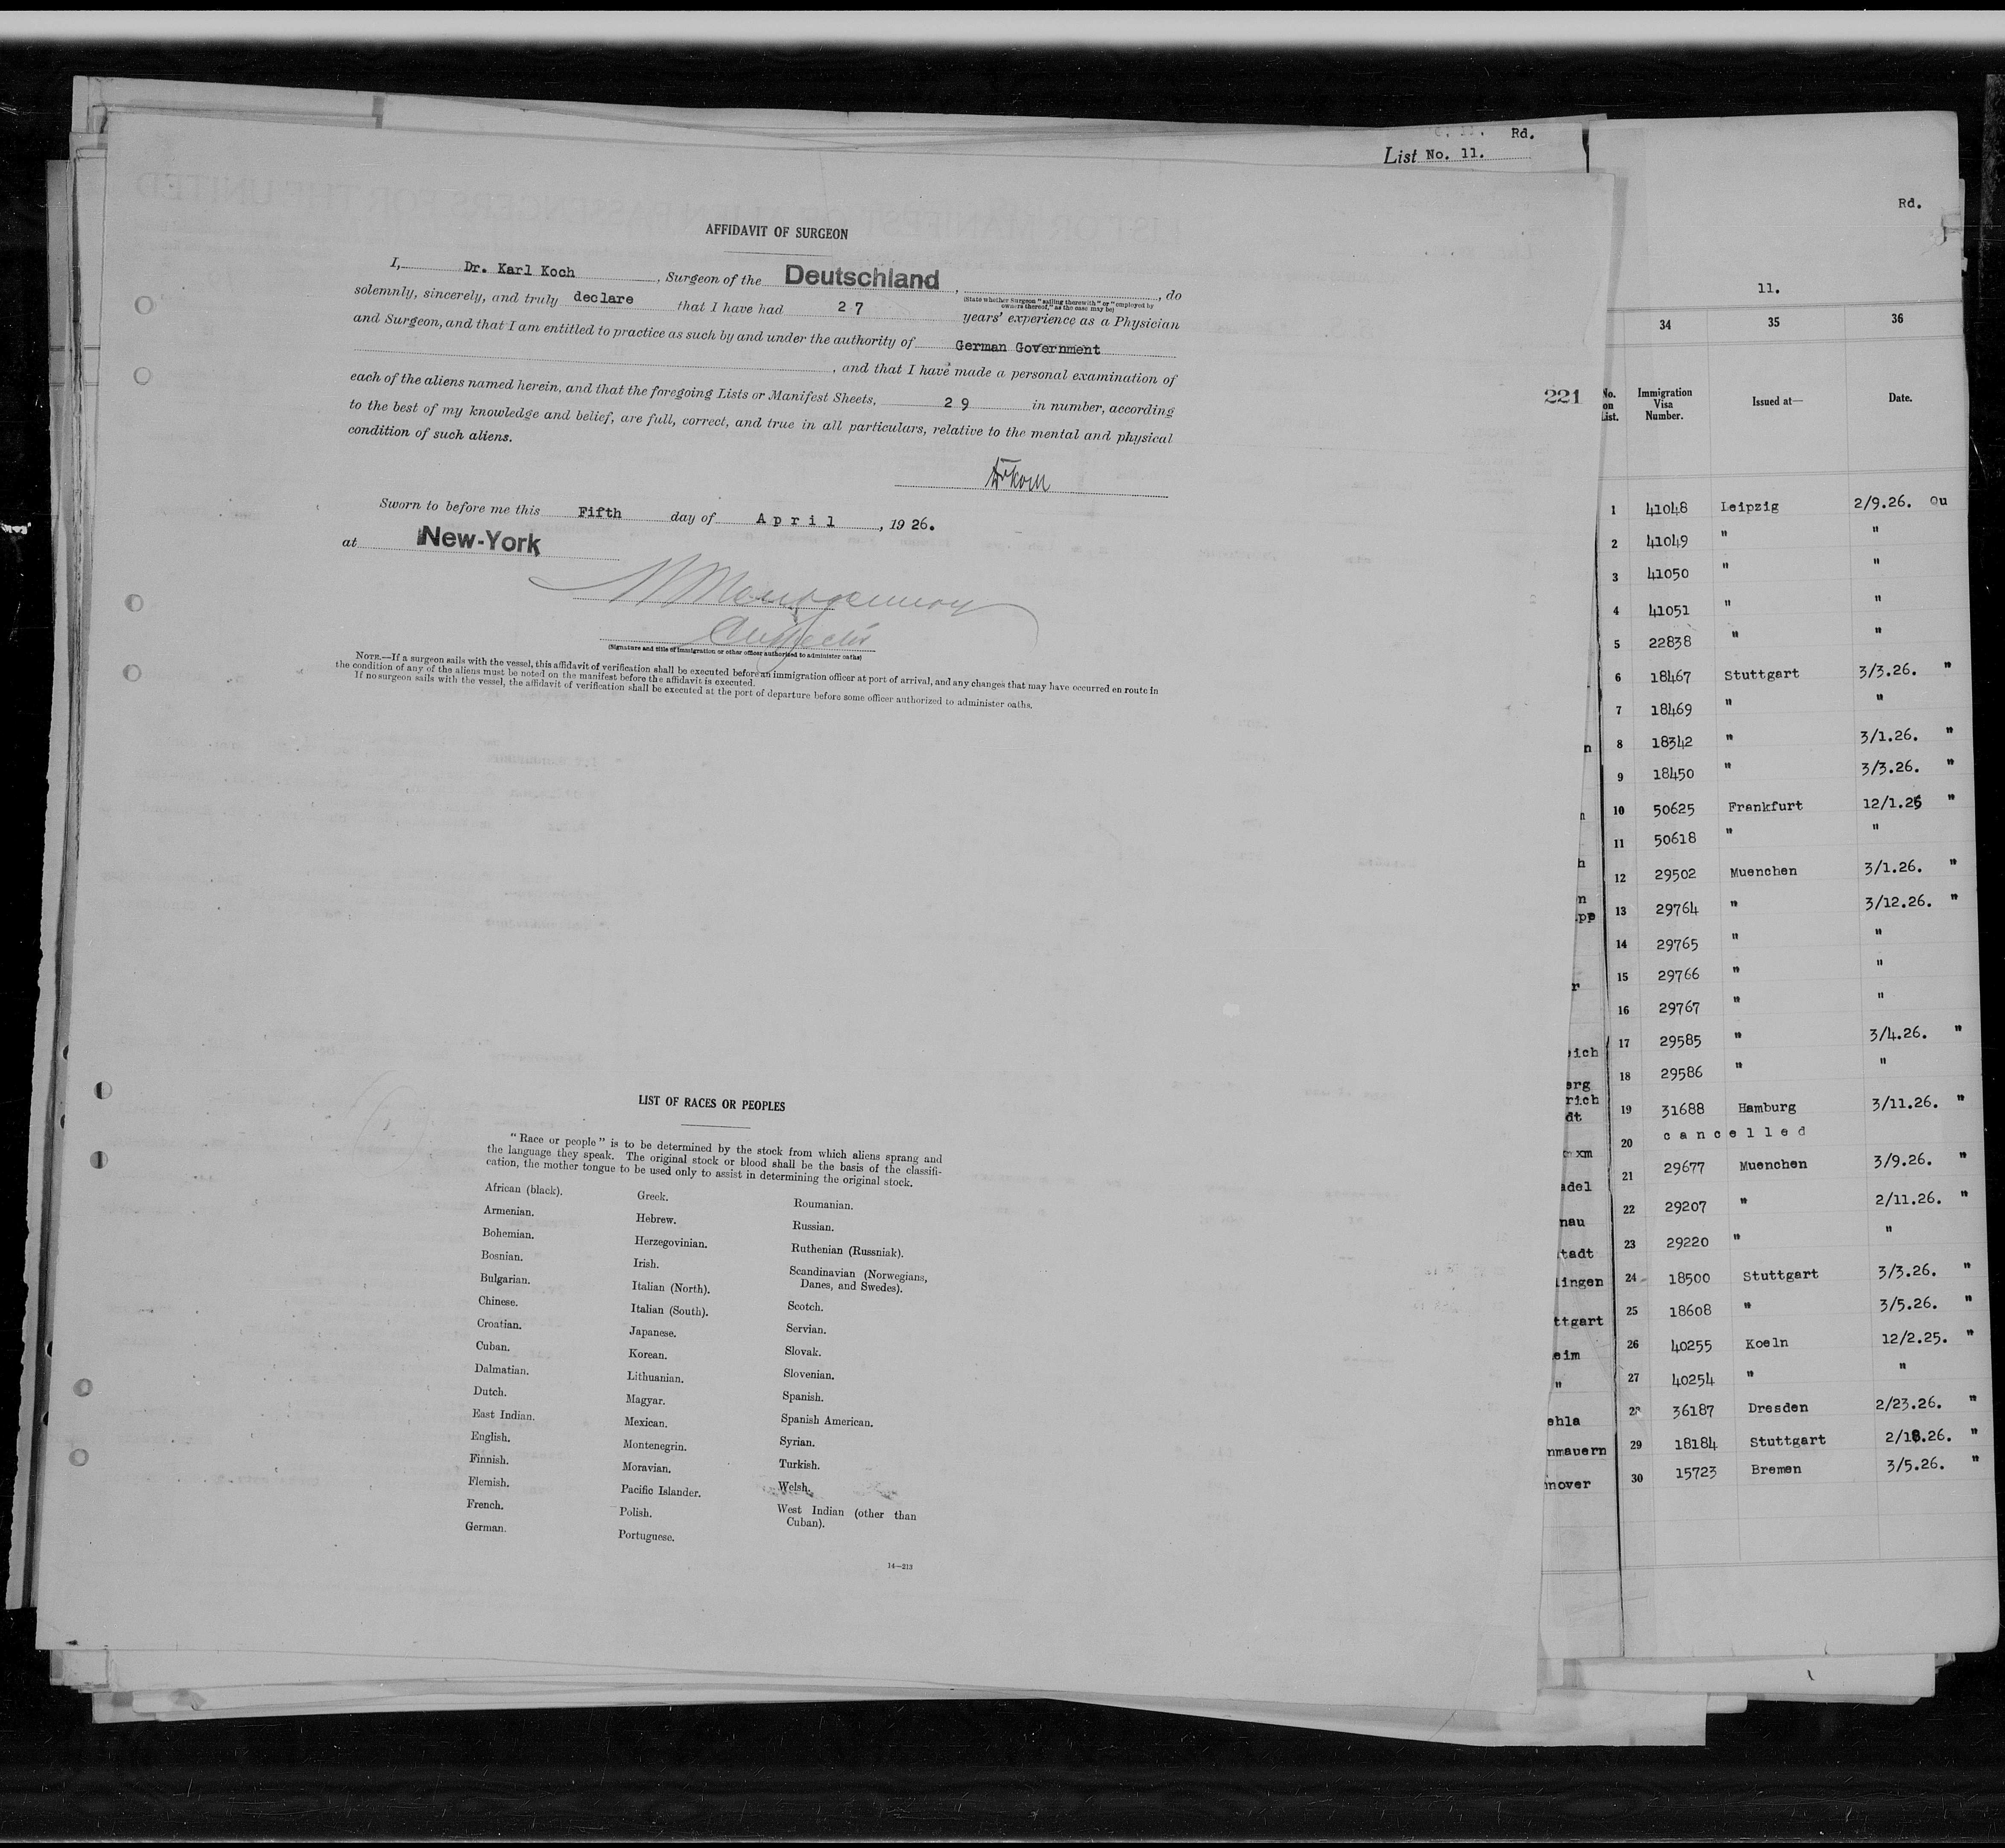 Rd.
List No. 11.
AFFIDAVIT OF SURGEON
I, Dr. Karl Koch, Surgeon of the Deutschland, , do
(State whether Surgeon "sailing therewith" or "employed by
owners thereof," as the case may be)
solemnly, sincerely, and truly declare that I have had 27 years' experience as a Physician
and Surgeon, and that I am entitled to practice as such by and under the authority of German Government
, and that I have made a personal examination of
each of the aliens named herein, and that the foregoing Lists or Manifest Sheets, 29 in number, according
to the best of my knowledge and belief, are full, correct, and true in all particulars, relative to the mental and physical
condition of such aliens.
Sworn to before me this Fifth day of April, 1926.
at New-York
(Signature and title of immigration or other officer authorized to administer oaths)
NOTE.—If a surgeon sails with the vessel, this affidavit of verification shall be executed before an immigration officer at port of arrival, and any changes that may have occurred en route in
the condition of any of the aliens must be noted on the manifest before the affidavit is executed.
If no surgeon sails with the vessel, the affidavit of verification shall be executed at the port of departure before some officer authorized to administer oaths.
LIST OF RACES OR PEOPLES
"Race or people" is to be determined by the stock from which aliens sprang and
the language they speak. The original stock or blood shall be the basis of the classifi-
cation, the mother tongue to be used only to assist in determining the original stock.
African (black).
Armenian.
Bohemian.
Bosnian.
Bulgarian.
Chinese.
Croatian.
Cuban.
Dalmatian.
Dutch.
East Indian.
English.
Finnish.
Flemish.
French.
German.
Greek.
Hebrew.
Herzegovinian.
Irish.
Italian (North).
Italian (South).
Japanese.
Korean.
Lithuanian.
Magyar.
Mexican.
Montenegrin.
Moravian.
Pacific Islander.
Polish.
Portuguese.
Roumanian.
Russian.
Ruthenian (Russniak).
Scandinavian (Norwegians,
Danes, and Swedes).
Scotch.
Servian.
Slovak.
Slovenian.
Spanish.
Spanish American.
Syrian.
Turkish.
Welsh.
West Indian (other than
Cuban).
14—213
221
Rd.
11.
34 35 36
No. on List. Immigration Visa Number. Issued at— Date.
1 41048 Leipzig 2/9.26. Qu
2 41049 " "
3 41050 " "
4 41051 " "
5 22838 " "
6 18467 Stuttgart 3/3.26. "
7 18469 " "
8 18342 " 3/1.26. "
9 18450 " 3/3.26. "
10 50625 Frankfurt 12/1.25 "
11 50618 " "
12 29502 Muenchen 3/1.26. "
13 29764 " 3/12.26. "
14 29765 " "
15 29766 " "
16 29767 " "
17 29585 " 3/4.26. "
18 29586 " "
19 31688 Hamburg 3/11.26. "
20 cancelled
21 29677 Muenchen 3/9.26. "
22 29207 " 2/11.26. "
23 29220 " "
24 18500 Stuttgart 3/3.26. "
25 18608 " 3/5.26. "
26 40255 Koeln 12/2.25. "
27 40254 " "
28 36187 Dresden 2/23.26. "
29 18184 Stuttgart 2/18.26. "
30 15723 Bremen 3/5.26. "